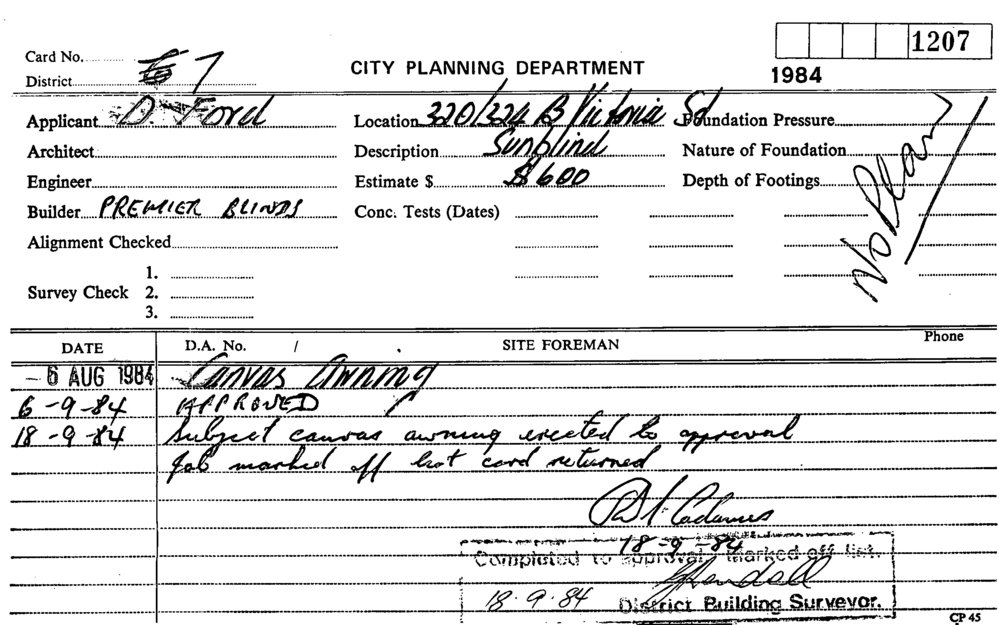 1207
1984
CITY PLANNING DEPARTMENT
Card No.
District 7
Applicant D Ford
Location 320/324 B Victoria Sd
Foundation Pressure
Architect
Description Sunblind
Nature of Foundation
Engineer
Estimate $ $600
Depth of Footings
Builder PREMIER BLINDS
Conc. Tests (Dates)
No Plan
Alignment Checked
1.
Survey Check 2.
3.
DATE D.A. No. / . SITE FOREMAN Phone
- 6 AUG 1984 Canvas Awning
6-9-84 APPROVED
18-9-84 Subject canvas awning erected to approval
Job marked off hot card returned
18-9-84
Completed to approval marked off list.
18.9.84 District Building Surveyor.
CP 45